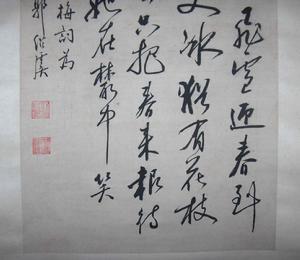 飛雪迎春到
丈冰猶有花枝
只把春来報待
她在叢中笑
梅詞為
郭绍虞